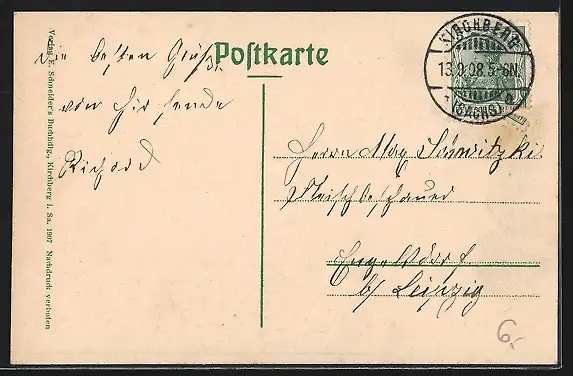 Postkarte
KIRCHBERG
13.9.08.5-6N.
(SACHS)
Die besten Grüße
von hir sende
Richard
Herrn Max
Fleischbeschauer
Engelsdorf
b/ Leipzig
Verlag E. Schneider's Buchhdlg., Kirchberg i. Sa. 1907 Nachdruck verboten
6.-